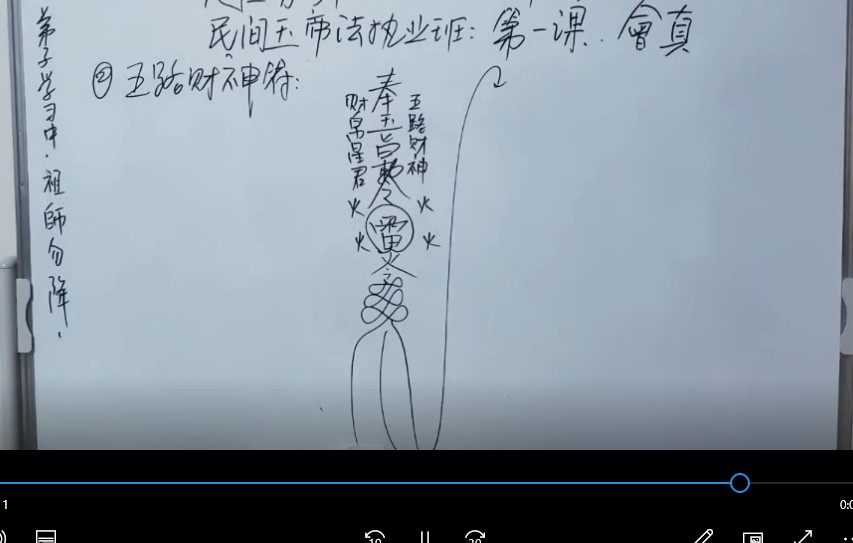 民间玉帝法执业班：第一课．會真
②五路财神符：
弟子学习中．祖師勿降．
奉玉旨敕令
五路财神
财帛星君
火 火
雷
火 火
火
1
0:0
10
30